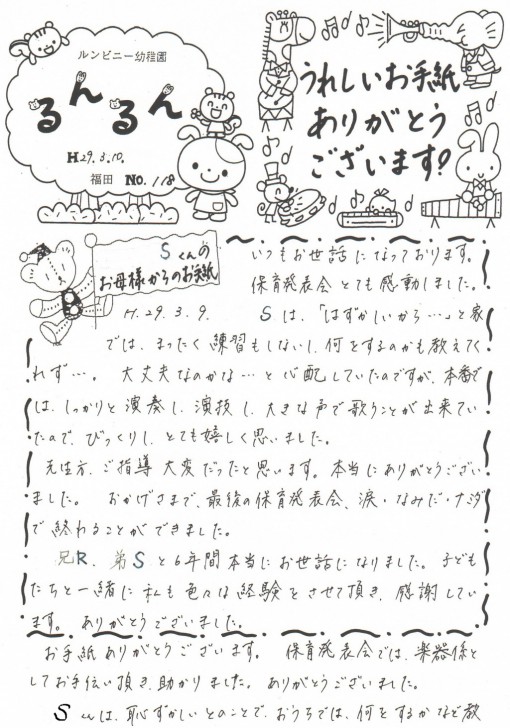 ルンビニー幼稚園
るんるん
H29.3.10.
福田 No.118
うれしいお手紙
ありがとう
ございます!
Sくんの
お母様からのお手紙
H.29.3.9.
いつもお世話になっております。
保育発表会とても感動しました。
Sは、「はずかしいから…」と家
では、まったく練習もしないし、何をするのかも教えてく
れず…。 大丈夫なのかな…と心配していたのですが、本番で
は、しっかりと演奏し、演技し、大きな声で歌うことが出来てい
たので、びっくりし、とても嬉しく思いました。
先生方、ご指導大変だったと思います。本当にありがとうござい
ました。 おかげさまで、最後の保育発表会、涙・なみだ・ナミダ
で終わることができました。
兄R、弟Sと6年間本当にお世話になりました。子ども
たちと一緒に私も色々な経験をさせて頂き、感謝してい
ます。 ありがとうございました。
お手紙ありがとうございます。 保育発表会では、楽器係と
してお手伝い頂き、助かりました。ありがとうございました。
Sくんは、恥ずかしいとのことで、おうちでは、何をするかなど教